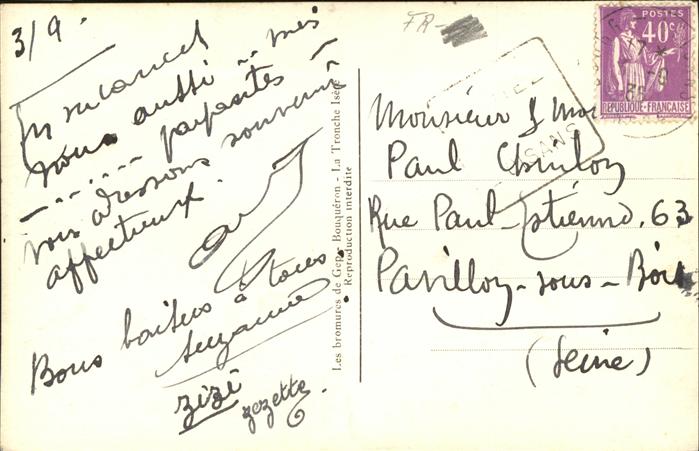 3/9.
En vacances
nous aussi .. mes
....... parfaites
vous adressons souvenirs
affectueux.
Bons baisers à tous
Suzanne
zizi
zezette.
Les bromures de Gep. - Bouquéron - La Tronche Isère
Reproduction interdite
FR-
POSTES
40c
REPUBLIQUE-FRANÇAISE
SANS
Monsieur &
Paul
Rue Paul-Etienne. 63
Pavillon-sous-Bois
(Seine)